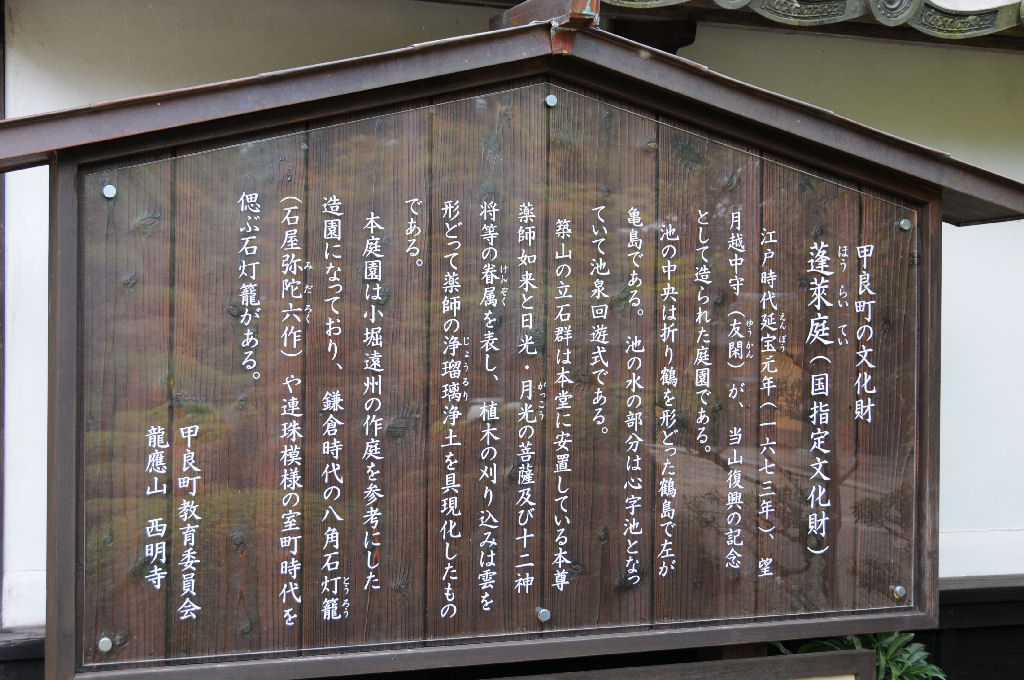 甲良町の文化財
蓬萊庭（国指定文化財）
ほう らい てい
江戸時代延宝元年（一六七三年）、望
えんぽう
月越中守（友閑）が、当山復興の記念
ゆうかん
として造られた庭園である。
池の中央は折り鶴を形どった鶴島で左が
亀島である。池の水の部分は心字池となっ
ていて池泉回遊式である。
築山の立石群は本堂に安置している本尊
薬師如来と日光・月光の菩薩及び十二神
がっこう
将等の眷属を表し、植木の刈り込みは雲を
けんぞく
形どって薬師の浄瑠璃浄土を具現化したもの
じょうるり
である。
本庭園は小堀遠州の作庭を参考にした
造園になっており、鎌倉時代の八角石灯籠
とうろう
（石屋弥陀六作）や連珠模様の室町時代を
みだろく
偲ぶ石灯籠がある。
甲良町教育委員会
龍應山 西明寺